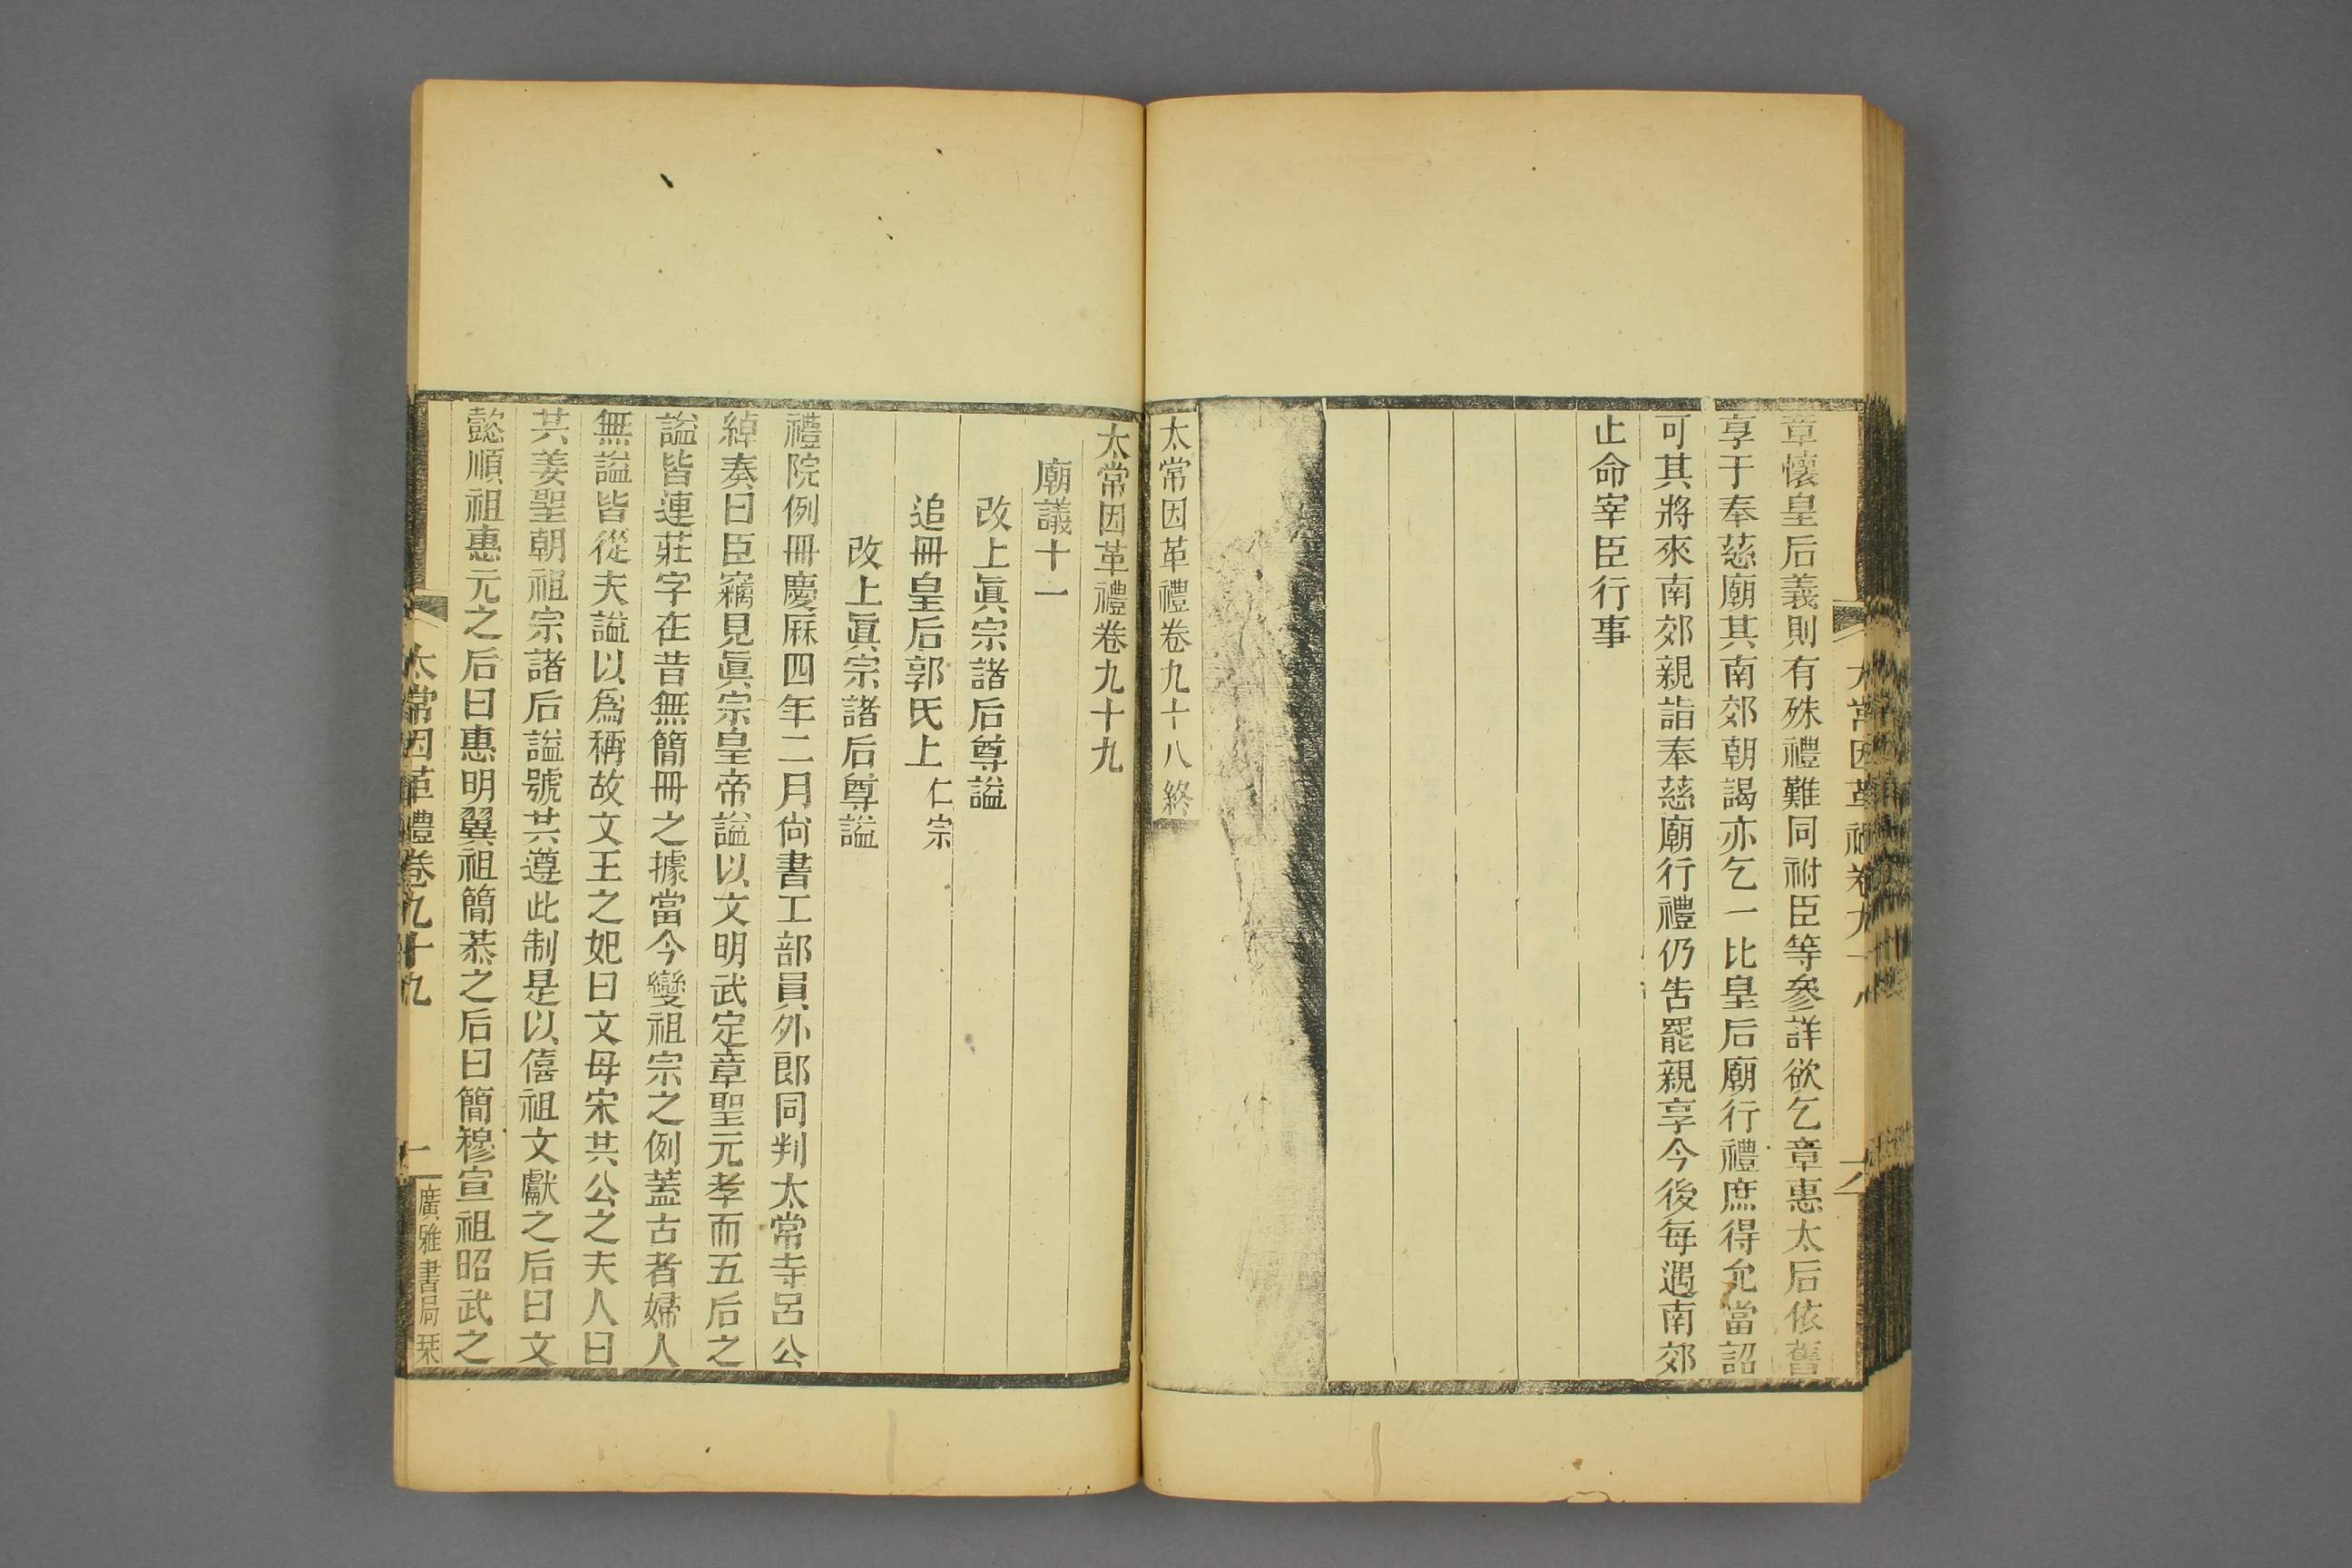 章懷皇后義則有殊禮難同祔臣等參詳欲乞章惠太后依舊
享于奉慈廟其南郊朝謁亦乞一比皇后廟行禮庶得允當詔
可其將來南郊親詣奉慈廟行禮仍告罷親享今後每遇南郊
止命宰臣行事
太常因革禮卷九十八終
太常因革禮卷九十九
廟議十一
改上眞宗諸后尊謚
追冊皇后郭氏上仁宗
改上眞宗諸后尊謚
禮院例冊慶厤四年二月尙書工部員外郎同判太常寺呂公
綽奏曰臣竊見眞宗皇帝謚以文明武定章聖元孝而五后之
謚皆連莊字在昔無簡冊之據當今變祖宗之例蓋古者婦人
無謚皆從夫謚以爲稱故文王之妃曰文母宋共公之夫人曰
共姜聖朝祖宗諸后謚號共遵此制是以僖祖文獻之后曰文
懿順祖惠元之后曰惠明翼祖簡恭之后曰簡穆宣祖昭武之
太常因革禮卷九十九
一
廣雅書局栞